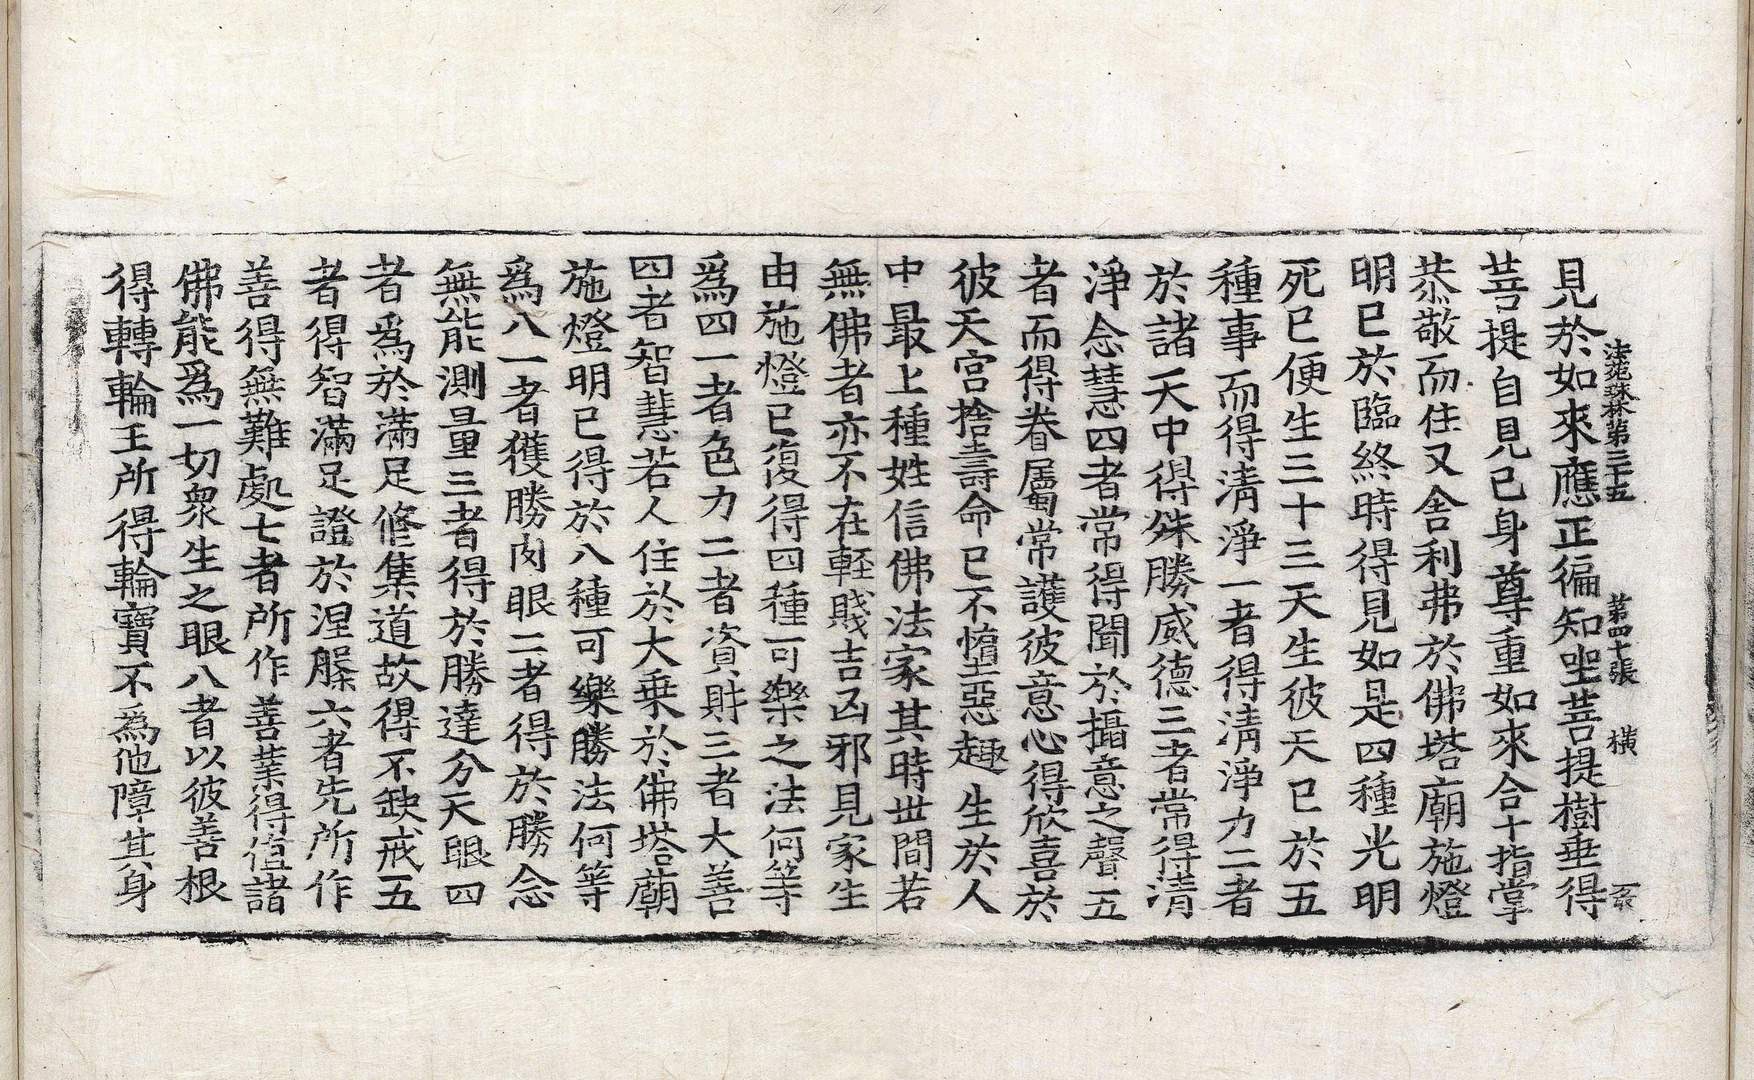 法苑珠林第三十五　第四十張　橫
見於如來應正徧知坐菩提樹垂得
菩提自見己身尊重如來合十指掌
恭敬而住又舍利弗於佛塔廟施燈
明已於臨終時得見如是四種光明
死已便生三十三天生彼天已於五
種事而得清淨一者得清淨力二者
於諸天中得殊勝威德三者常得清
淨念慧四者常得聞於攝意之聲五
者而得眷屬常護彼意心得欣喜於
彼天宮捨壽命已不憻惡趣生於人
中最上種姓信佛法家其時世間若
無佛者亦不在輕賎吉凶邪見家生
由施燈已復得四種可樂之法何等
爲四一者色力二者資財三者大善
四者智慧若人住於大乗於佛塔廟
施燈明已得於八種可樂勝法何等
爲八一者獲勝肉眼二者得於勝念
無能測量三者得於勝達分天眼四
者爲於滿足修集道故得不缺戒五
者得智滿足證於涅槃六者先所作
善得無難處七者所作善業得值諸
佛能爲一切衆生之眼八者以彼善根
得轉輪王所得輪寶不爲他障其身